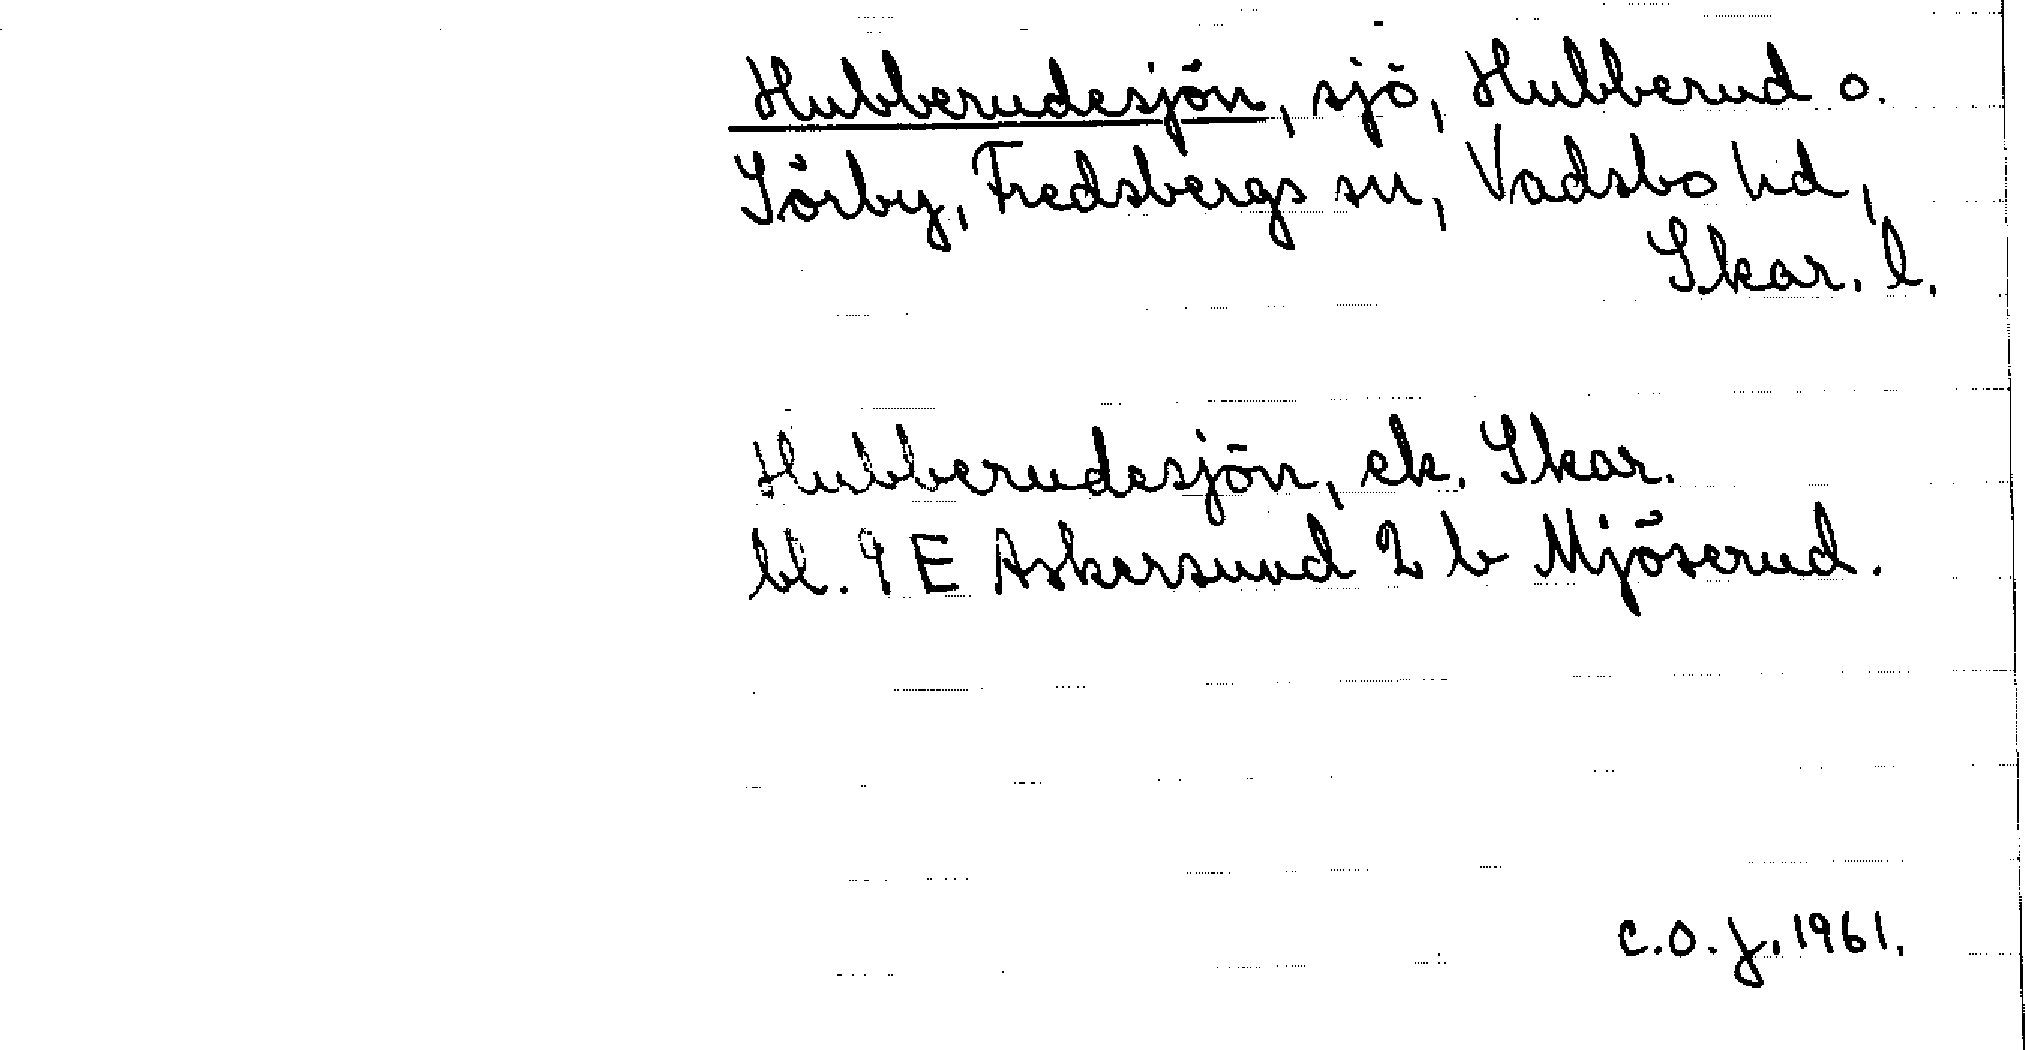 Hubberudesjön, sjö, Hubberud o.
Sörby, Fredsbergs sn, Vadsbo hd,
Skar. l.
Hubberudesjön, ek. Skar.
bl. 9 E Askersund 2 b Mjöserud.
C.O.J. 1961.